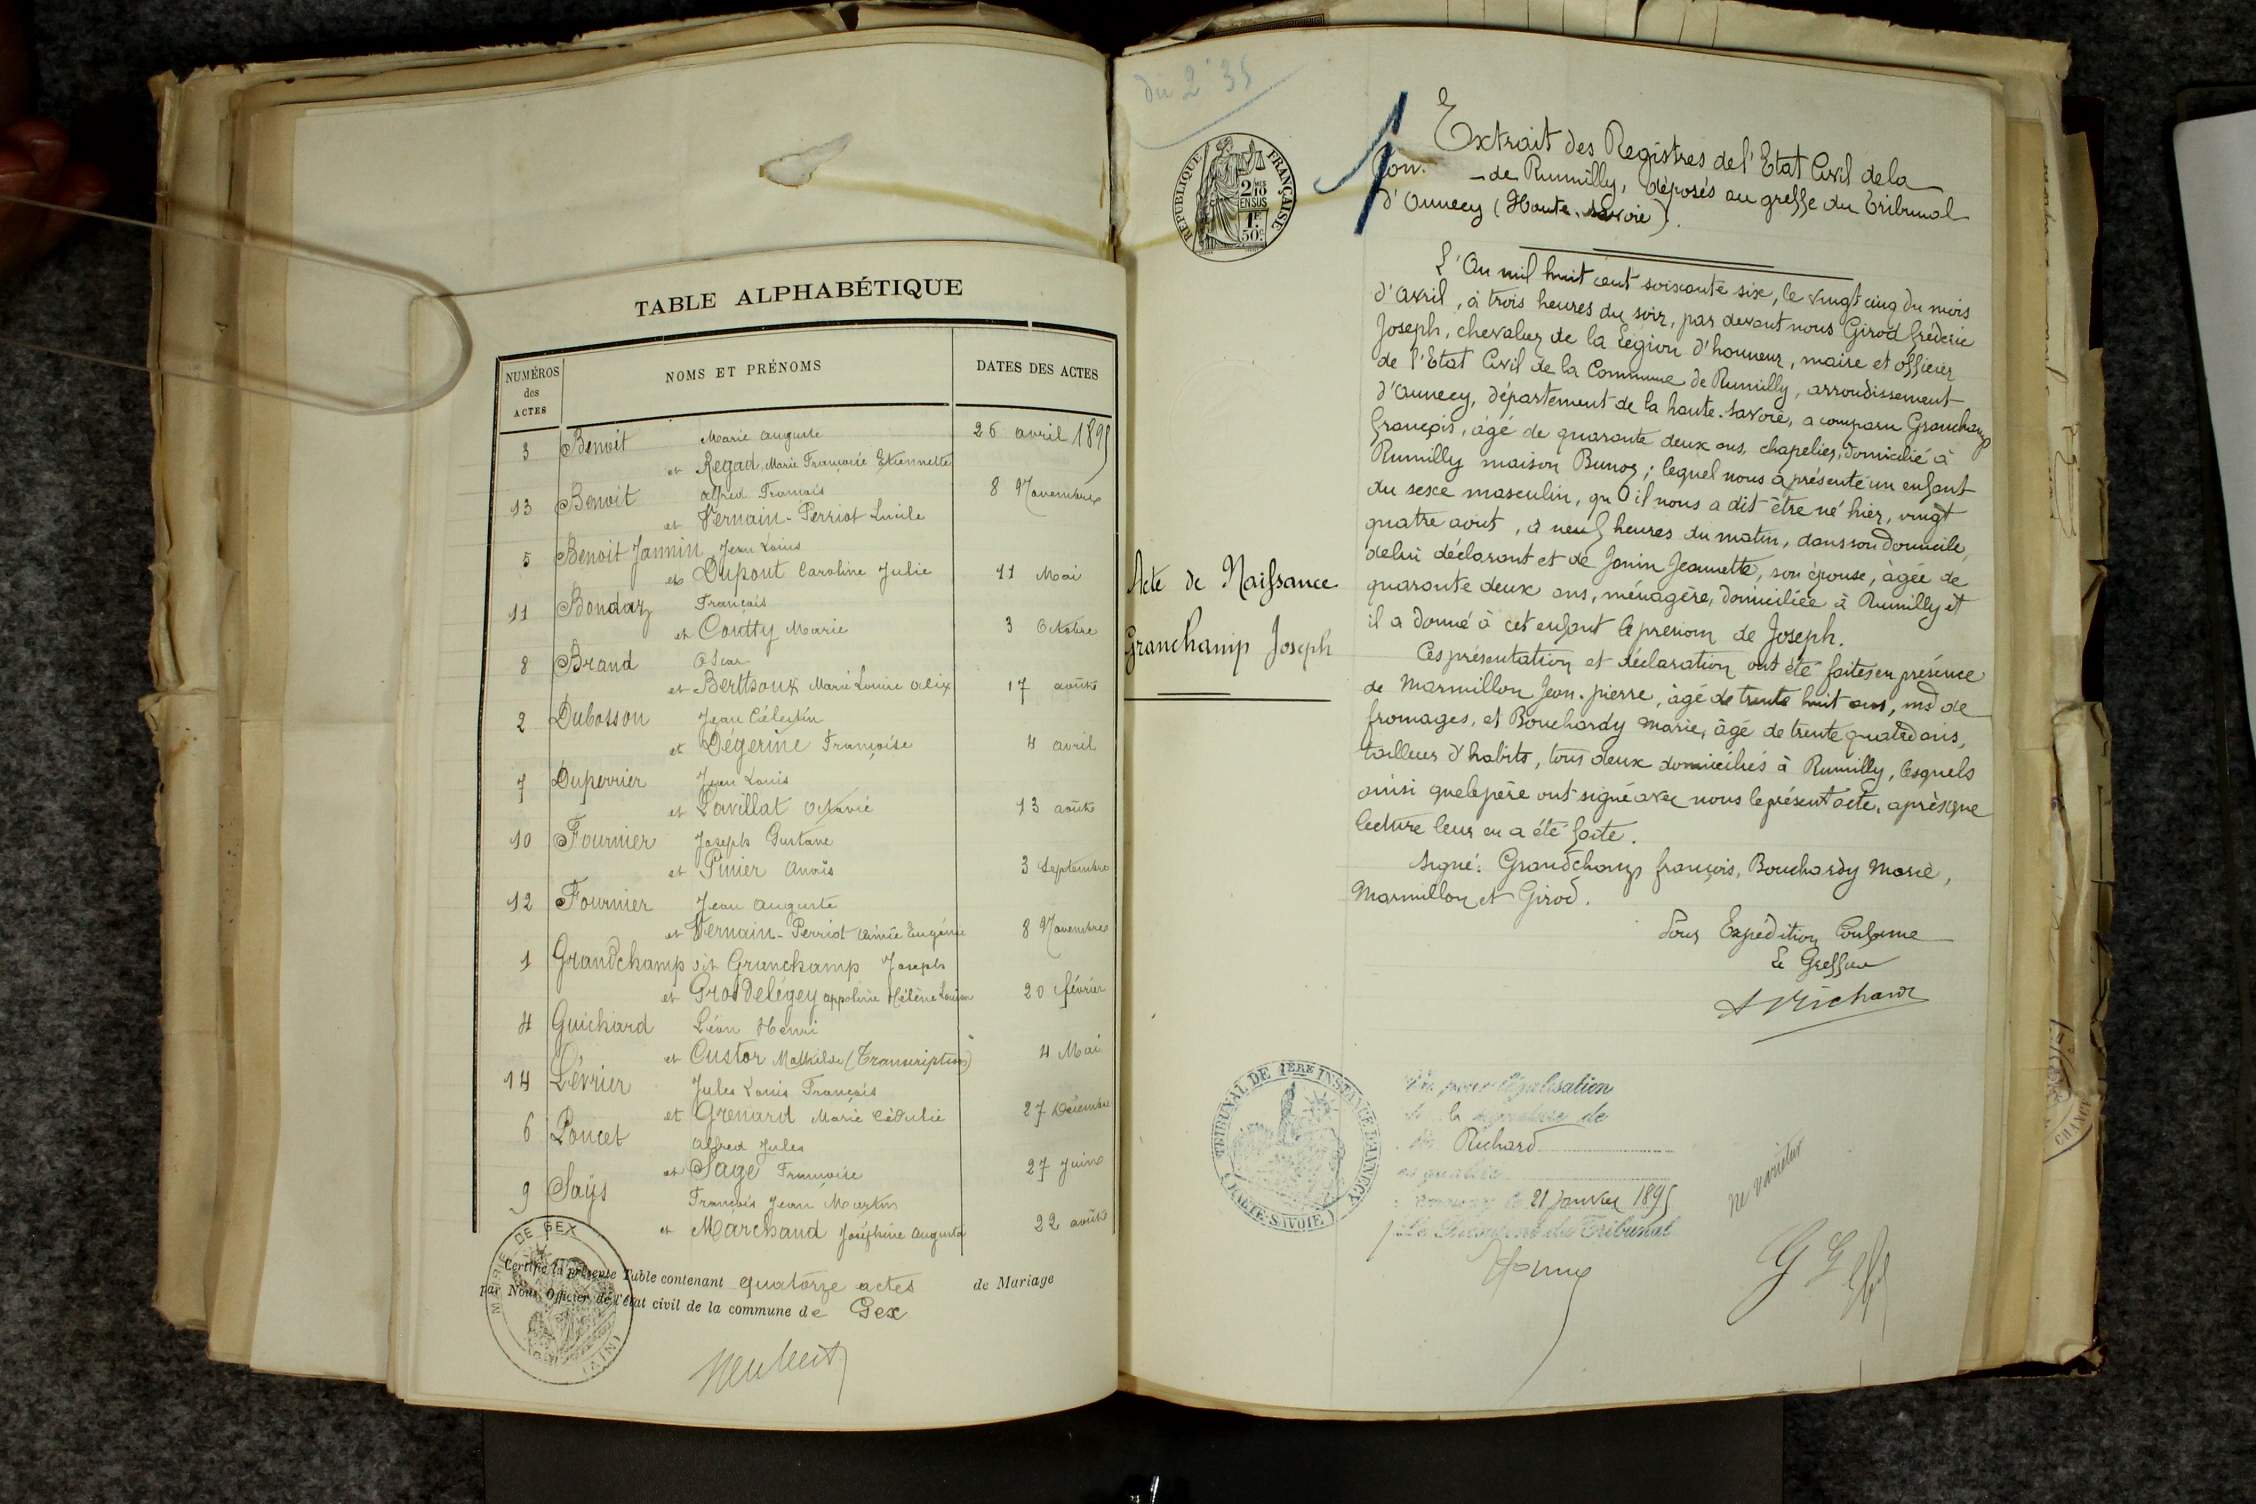 TABLE ALPHABÉTIQUE
NUMÉROS des ACTES
NOMS ET PRÉNOMS
DATES DES ACTES
3 Benoit Marie Auguste
et Regad Marie Françoise Etiennette 26 avril 1895
13 Benoit Alfred François
et Vernain-Perriot Lucile 8 Novembre
5 Benoit Jannin Jean Louis
et Dupont Caroline Julie 11 Mai
11 Bondaz François
et Coutty Marie 3 Octobre
8 Brand Oscar
et Berthoux Marie Louise Alix 17 août
2 Dubosson Jean Célestin
et Dégerine Françoise 4 avril
7 Dupervier Jean Louis
et Lavillat Octavie 13 août
10 Fournier Joseph Gustave
et Pinier Anaïs 3 Septembre
12 Fournier Jean Auguste
et Vernain-Perriot Aimée Eugénie 8 Novembre
1 Grandchamp dit Granchamp Joseph
et Grosdelégey Appoline Hélène Louise 20 février
4 Guichard Léon Henri
et Custor Mathilde (Transcription) 4 Mai
14 Lévrier Jules Louis François
et Grenard Marie Cédulie 27 Décembre
6 Poncet Alfred Jules
et Sage Françoise 27 Juin
9 Saÿs François Jean Martin
et Marchand Joséphine Augusta 22 août
Certifié la présente Table contenant quatorze actes de Mariage
par Nous, Officier de l'état civil de la commune de Gex
MAIRIE DE GEX (AIN)
du 2 35
RÉPUBLIQUE FRANÇAISE
2/10 EN SUS
1F 50c
Extrait des Registres de l'Etat Civil de la
Com. de Rumilly, déposés au greffe du Tribunal
d'Annecy (Haute-Savoie).
Acte de Naissance
Granchamp Joseph
L'An mil huit cent soixante six, le vingt cinq du mois
d'avril, à trois heures du soir, par devant nous Girod fréderic
Joseph, chevalier de la Légion d'honneur, maire et officier
de l'Etat Civil de la Commune de Rumilly, arrondissement
d'Annecy, département de la haute-Savoie, a comparu Granchamp
françois, âgé de quarante deux ans, chapelier, domicilié à
Rumilly maison Bunoz ; lequel nous a présenté un enfant
du sexe masculin, qu'il nous a dit être né hier, vingt
quatre aout, à neuf heures du matin, dans son domicile,
de lui déclarant et de Janin Jeannette, son épouse, âgée de
quarante deux ans, ménagère, domiciliée à Rumilly et
il a donné à cet enfant le prenom de Joseph.
Ces présentation et déclaration ont été faites en présence
de Marmillon Jean-pierre, âgé de trente huit ans, md de
fromages, et Bouchardy Marie, âgé de trente quatre ans,
tailleur d'habits, tous deux domiciliés à Rumilly, lesquels
ainsi que le père ont signé avec nous le présent acte, après que
lecture leur en a été faite.
Signé : Grandchamp françois, Bouchardy Marie,
Marmillon et Girod.
Pour Expédition Conforme
Le Greffier
Richard
TRIBUNAL DE 1ÈRE INSTANCE D'ANNECY (HAUTE-SAVOIE)
Vu pour légalisation
de la signature de
Mr Richard
sa qualité
Annecy le 21 Janvier 1895
Le Président du Tribunal
ne varietur